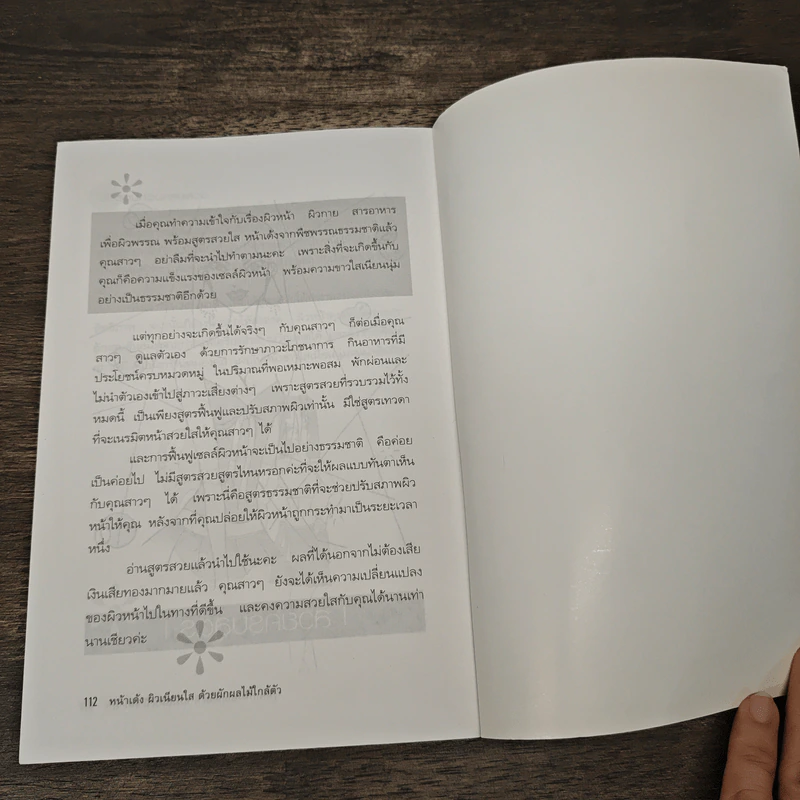 เมื่อคุณทำความเข้าใจกับเรื่องผิวหน้า ผิวกาย สารอาหาร
เพื่อผิวพรรณ พร้อมสูตรสวยใส หน้าเด้งจากพืชพรรณธรรมชาติแล้ว
คุณสาวๆ อย่าลืมที่จะนำไปทำตามนะคะ เพราะสิ่งที่จะเกิดขึ้นกับ
คุณก็คือความแข็งแรงของเซลล์ผิวหน้า พร้อมความขาวใสเนียนนุ่ม
อย่างเป็นธรรมชาติอีกด้วย
แต่ทุกอย่างจะเกิดขึ้นได้จริงๆ กับคุณสาวๆ ก็ต่อเมื่อคุณ
สาวๆ ดูแลตัวเอง ด้วยการรักษาภาวะโภชนาการ กินอาหารที่มี
ประโยชน์ครบหมวดหมู่ ในปริมาณที่พอเหมาะพอสม พักผ่อนและ
ไม่นำตัวเองเข้าไปสู่ภาวะเสี่ยงต่างๆ เพราะสูตรสวยที่รวบรวมไว้ทั้ง
หมดนี้ เป็นเพียงสูตรฟื้นฟูและปรับสภาพผิวเท่านั้น มิใช่สูตรเทวดา
ที่จะเนรมิตหน้าสวยใสให้คุณสาวๆ ได้
และการฟื้นฟูเซลล์ผิวหน้าจะเป็นไปอย่างธรรมชาติ คือค่อย
เป็นค่อยไป ไม่มีสูตรสวยสูตรไหนหรอกค่ะที่จะให้ผลแบบทันตาเห็น
กับคุณสาวๆ ได้ เพราะนี่คือสูตรธรรมชาติที่จะช่วยปรับสภาพผิว
หน้าให้คุณ หลังจากที่คุณปล่อยให้ผิวหน้าถูกกระทำมาเป็นระยะเวลา
หนึ่ง
อ่านสูตรสวยแล้วนำไปใช้นะคะ ผลที่ได้นอกจากไม่ต้องเสีย
เงินเสียทองมากมายแล้ว คุณสาวๆ ยังจะได้เห็นความเปลี่ยนแปลง
ของผิวหน้าไปในทางที่ดีขึ้น และคงความสวยใสกับคุณได้นานเท่า
นานเชียวค่ะ
112 หน้าเด้ง ผิวเนียนใส ด้วยผักผลไม้ใกล้ตัว